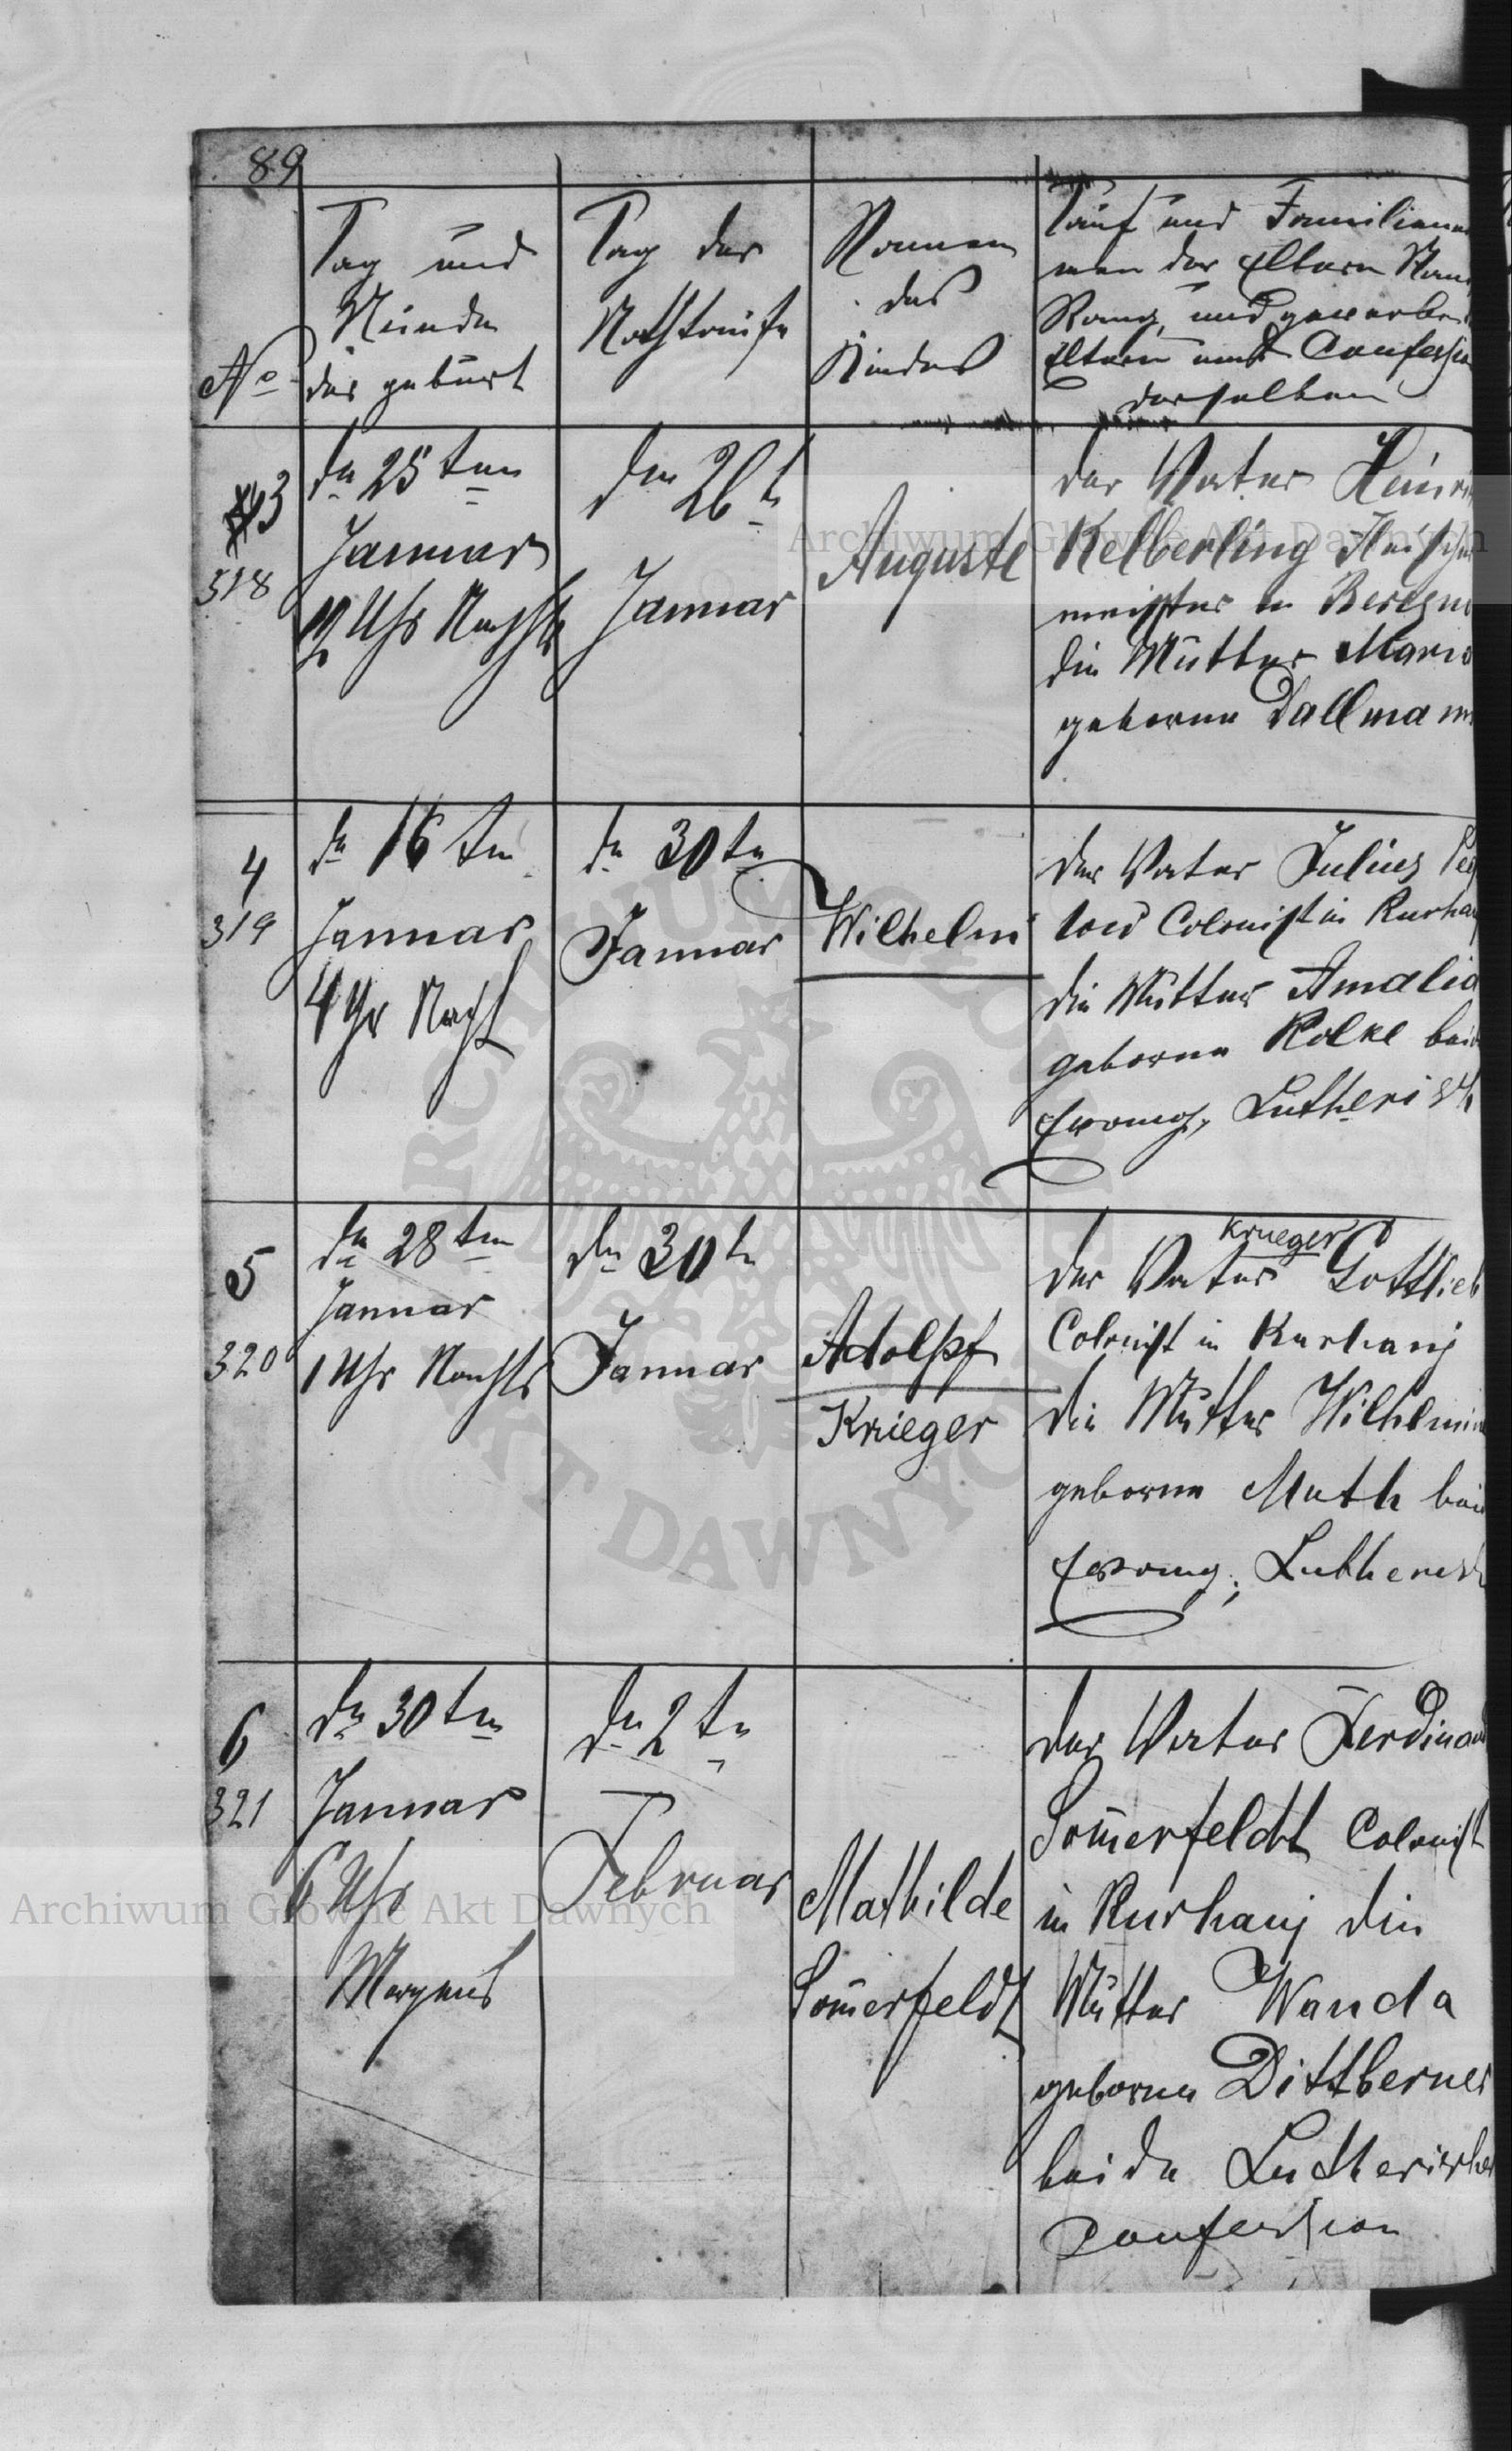 89
No
Tag und
Stunde
der geburt
Tag der
Nothtaufe
Namen
des
Kindes
Tauf und Familienna
men der Eltern
Rang, und gewerbe
Eltern und Confession
derselben
3
318
den 25 ten
Januar
12 Uhr Nachts
den 26 t
Januar
Auguste
der Vater Heinri
Kelberling Fleischer
meister in Berezno
die Mutter Maria
geborne Dallmann
4
319
den 16 ten
Januar
4 Uhr Nacht
den 30 ten
Januar
Wilhelm
der Vater Julius
Colonist in Kurhan
die Mutter Amalia
geborne Rolke beid
Evang, Lutherisch
5
320
den 28 ten
Januar
1 Uhr Nachts
den 30 ten
Januar
Adolpf
Krieger
Krueger
der Vater Gottlieb
Colonist in Kurhanj
die Mutter Wilhelmine
geborne Muth beid
Evang; Lutherisch
6
321
den 30 ten
Januar
6 Uhr
Morgens
den 2 ten
Februar
Mathilde
Som̅erfeldt
der Vater Ferdinand
Som̅erfeldt Colonist
in Kurhanj die
Mutter Wanda
geborne Dittberner
beide Lutherischer
Confession
Archiwum Główne Akt Dawnych
Archiwum Główne Akt Dawnych
ARCHIWUM GŁÓWNE
AKT DAWNYCH